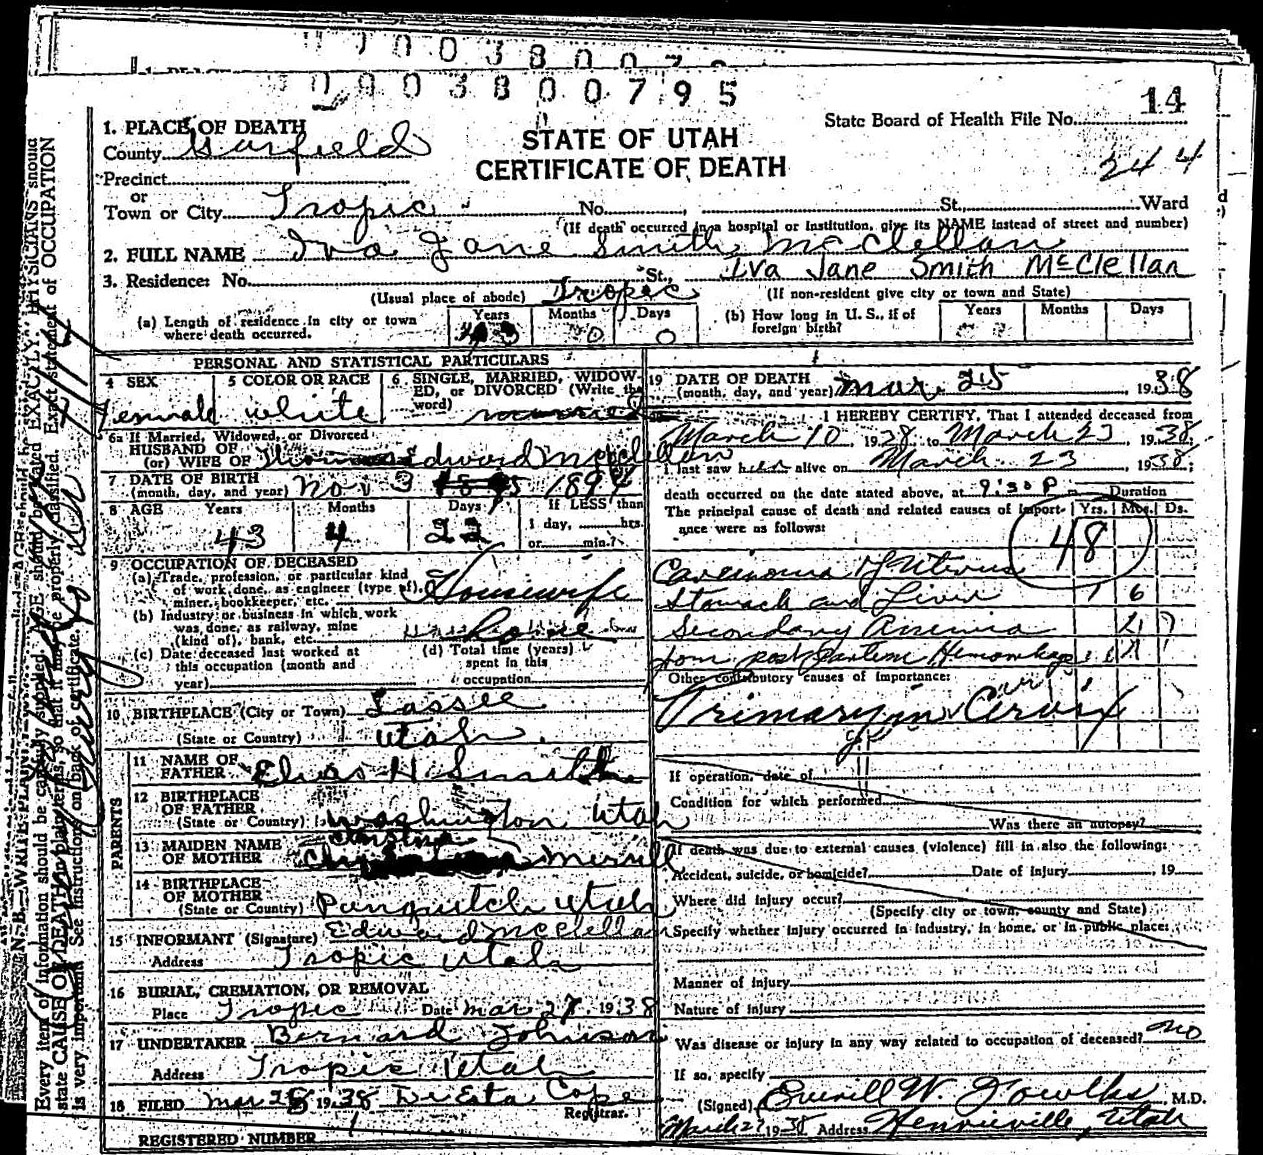 0003800795
14
State Board of Health File No.
STATE OF UTAH
CERTIFICATE OF DEATH
244
1. PLACE OF DEATH
County Garfield
Precinct
or
Town or City Tropic No. St. Ward
(If death occurred in a hospital or institution, give its NAME instead of street and number)
2. FULL NAME Iva Jane Smith McClellan
Iva Jane Smith McClellan
3. Residence: No. St.,
(Usual place of abode) Tropic (If non-resident give city or town and State)
(a) Length of residence in city or town where death occurred. Years 43 Months 0 Days 0
(b) How long in U. S., if of foreign birth? Years Months Days
PERSONAL AND STATISTICAL PARTICULARS
4 SEX Female
5 COLOR OR RACE white
6 SINGLE, MARRIED, WIDOWED, or DIVORCED (Write the word) married
6a If Married, Widowed, or Divorced
HUSBAND OF
(or) WIFE OF Edward McClellan
7 DATE OF BIRTH
(month, day, and year) Nov 3 1894
8 AGE Years 43 Months 4 Days 22 If LESS than 1 day, hrs. or min.?
9 OCCUPATION OF DECEASED
(a) Trade, profession, or particular kind of work done, as engineer (type of), miner, bookkeeper, etc. Housewife
(b) Industry or business in which work was done, as railway, mine (kind of), bank, etc. home
(c) Date deceased last worked at this occupation (month and year)
(d) Total time (years) spent in this occupation
10 BIRTHPLACE (City or Town)
(State or Country) Utah
PARENTS
11 NAME OF FATHER Elias H. Smith
12 BIRTHPLACE OF FATHER
(State or Country) Washington Utah
13 MAIDEN NAME OF MOTHER Merrill
14 BIRTHPLACE OF MOTHER
(State or Country) Panguitch Utah
15 INFORMANT (Signature) Edward McClellan
Address Tropic Utah
16 BURIAL, CREMATION, OR REMOVAL
Place Tropic Date Mar 27 1938
17 UNDERTAKER Bernard Johnson
Address Tropic Utah
18 FILED Mar 28 1938 DeEsta Cope
Registrar.
REGISTERED NUMBER 1
19 DATE OF DEATH
(month, day, and year) Mar. 25 1938
I HEREBY CERTIFY, That I attended deceased from
March 10 1938 to March 23 1938;
I last saw her alive on March 23 1938;
death occurred on the date stated above, at 9:30 P m.
The principal cause of death and related causes of importance were as follows:
Duration
Yrs. Mos. Ds.
48
Carcinoma of Uterus
Stomach and Liver 1 6
Secondary Anemia
from post partem Hemorrhage
Other contributory causes of importance:
Primary in Cervix
If operation, date of
Condition for which performed
Was there an autopsy?
If death was due to external causes (violence) fill in also the following:
Accident, suicide, or homicide? Date of injury , 19
Where did injury occur?
(Specify city or town, county and State)
Specify whether injury occurred in industry, in home, or in public place:
Manner of injury
Nature of injury
Was disease or injury in any way related to occupation of deceased? no
If so, specify
(Signed) W. Fowlks, M.D.
March 27 1938 Address Henrieville, Utah